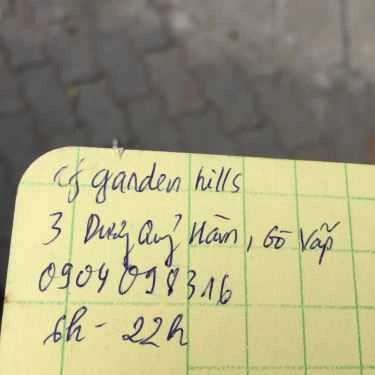 cf garden hills
3 Dương Quảng Hàm, Gò Vấp
0904 098 316
6h - 22h